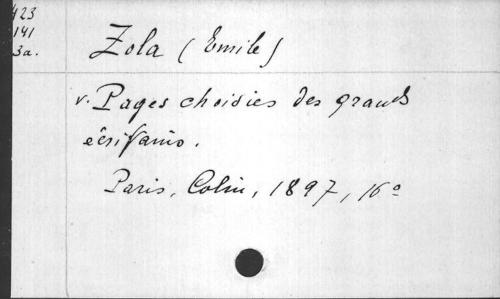 423
141
3a.
Zola (Emile)
v. Pages choisies des grands
écrivains.
Paris, Colin, 1897, 16º